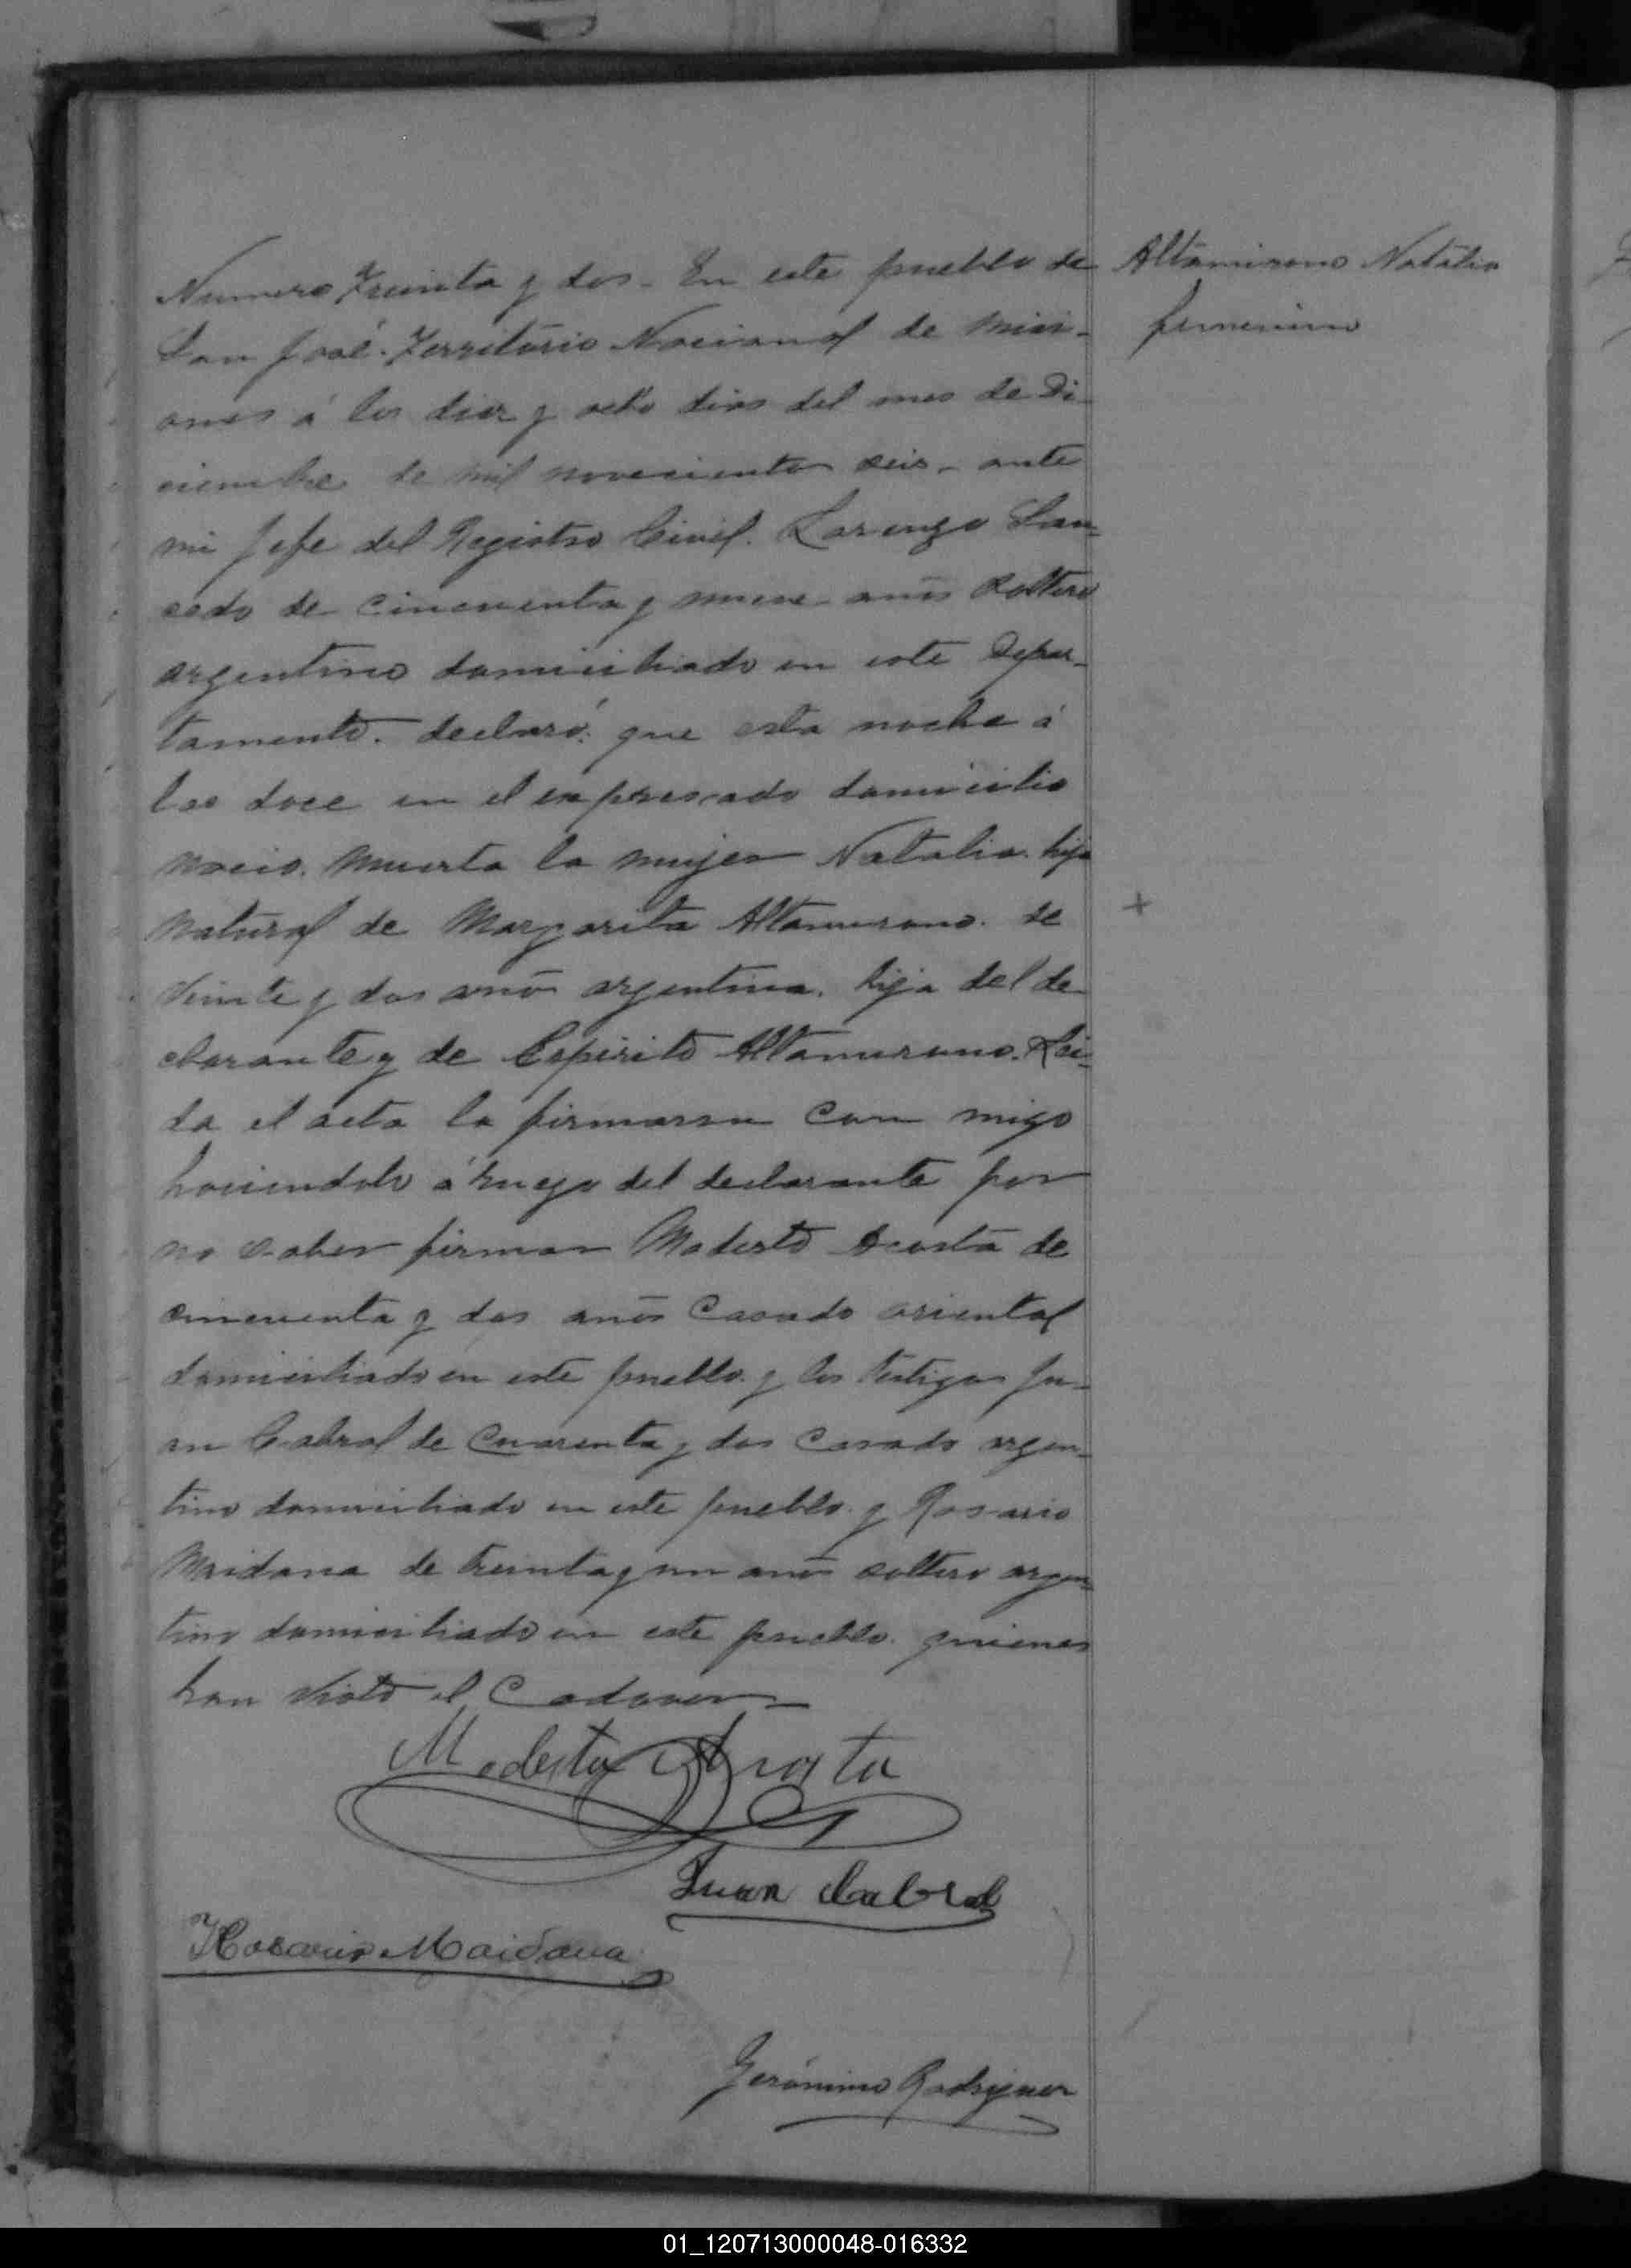 Numero Treinta y dos. En este pueblo de
San José. Territorio Nacional de Misi-
ones á los diez y ocho dias del mes de Di-
ciembre de mil novecientos seis. ante
mi Jefe del Registro Civil. Lorenzo San-
cedo de cincuenta y nueve años soltero
argentino domiciliado en este Depar-
tamento. declaró: que esta noche á
las doce en el expresado domicilio
nacio. muerta la mujer Natalia. hija
natural de Margarita Altamirano. de
veinte y dos años argentina. hija del de-
clarante y de Espirito Altamirano. Lei-
da el acta la firmaron con migo
haciendolo á ruego del declarante por
no saber firmar Modesto Acosta de
cincuenta y dos años casado oriental
domiciliado en este pueblo. y los testigos Ju-
an Cabral de cuarenta y dos casado argen-
tino domiciliado en este pueblo. y Rosario
Maidana de treinta y un años soltero argen-
tino domiciliado en este pueblo. quienes
han visto el Cadaver
Modesto Acosta
Juan Cabral
Rosario Maidana
Gerónimo Rodriguez
Altamirano Natalia
femenino
01_120713000048-016332